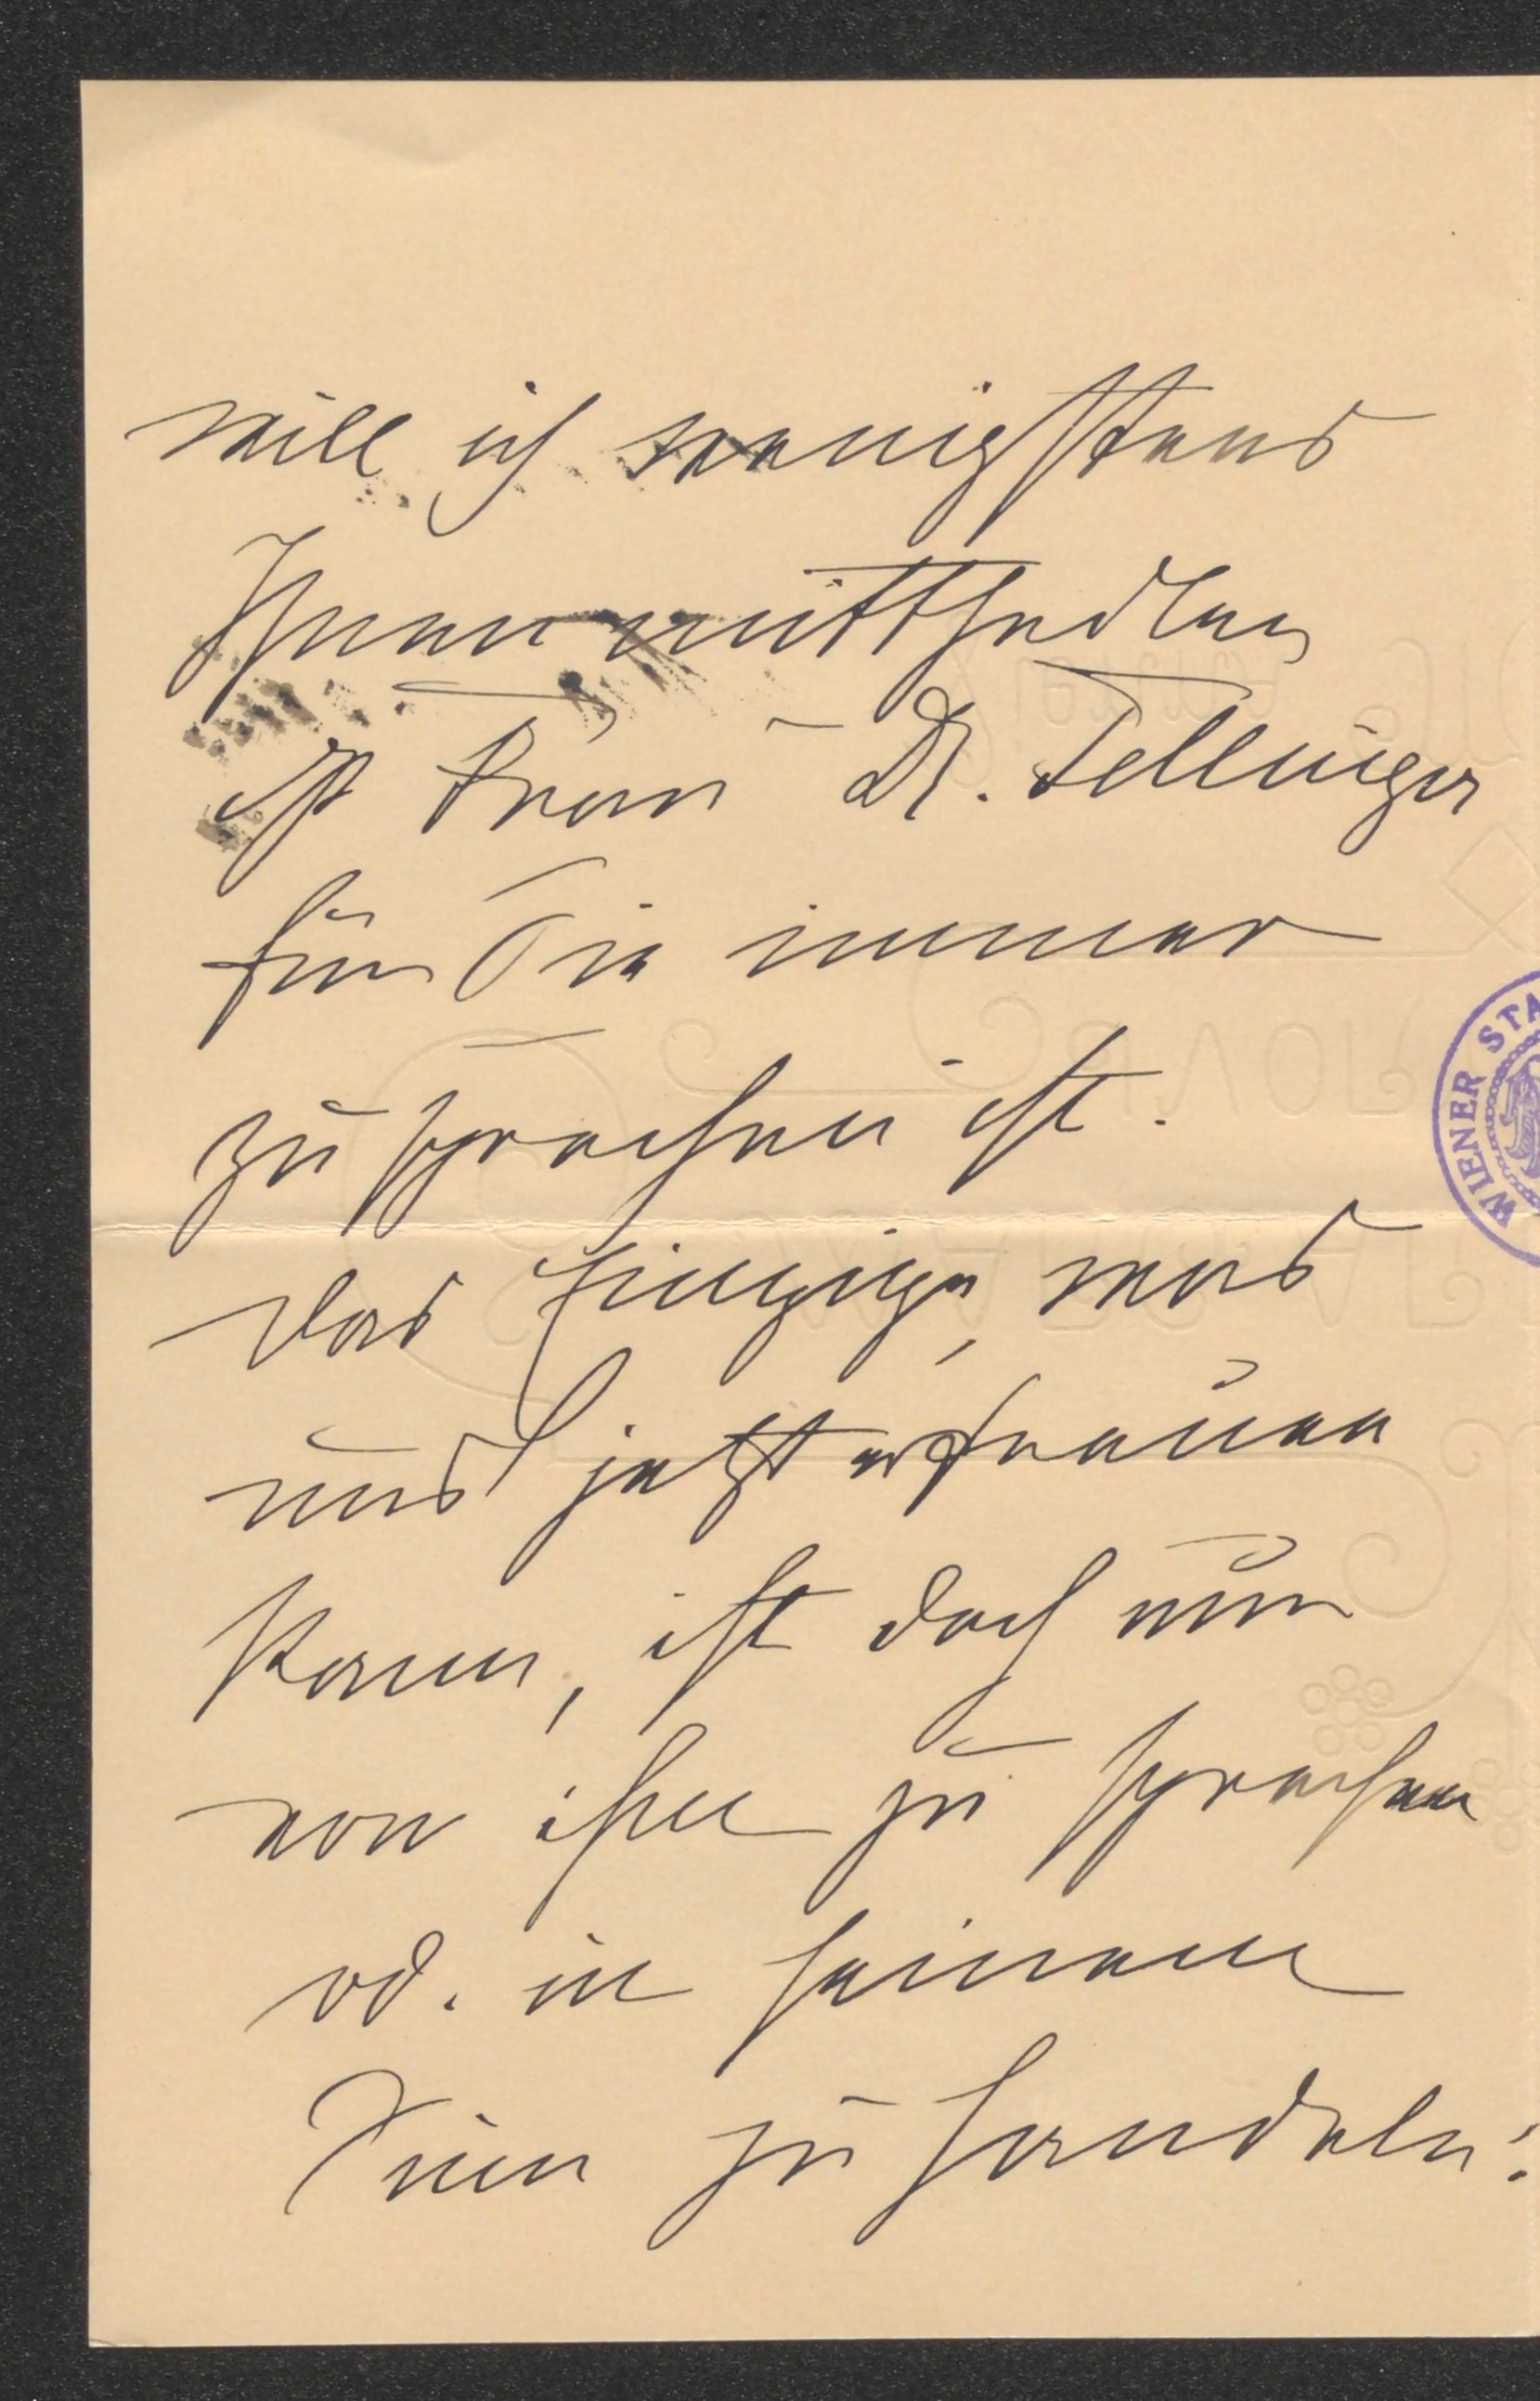 will ich wenigstens
Ihnen mittheilen
dß Frau Dr. Fellinger
für Sie immer
zu sprechen ist.
das Einzige, was
uns jetzt erfreuen
kann, ist doch nur
von ihm zu sprechen
od. in seinem
Sinn zu handeln:
WIENER STA